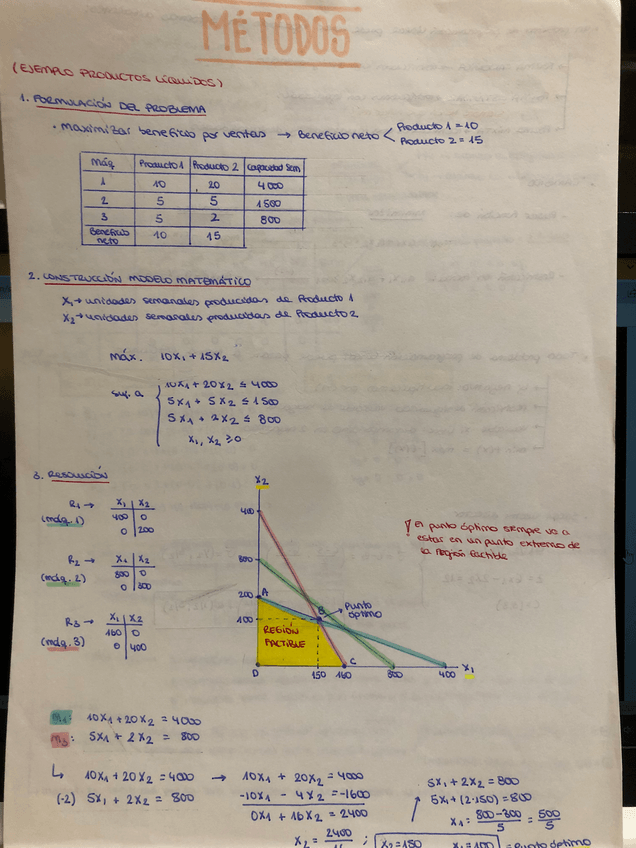 MÉTODOS
(EJEMPLO PRODUCTOS LÍQUIDOS)
1. FORMULACIÓN DEL PROBLEMA
· Maximizar beneficio por ventas → Beneficio neto < Producto 1 = 10
Producto 2 = 15
Máq Producto 1 Producto 2 Capacidad sem
1 10 20 4000
2 5 5 1500
3 5 2 800
Beneficio neto 10 15
2. CONSTRUCCIÓN MODELO MATEMÁTICO
X1 → unidades semanales producidas de Producto 1
X2 → unidades semanales producidas de Producto 2
máx. 10X1 + 15X2
suj. a { 10X1 + 20X2 ≤ 4000
5X1 + 5X2 ≤ 1500
5X1 + 2X2 ≤ 800
X1, X2 ≥ 0
3. RESOLUCIÓN
R1 → X1 X2
(máq. 1) 400 0
0 200
R2 → X1 X2
(máq. 2) 300 0
0 300
R3 → X1 X2
(máq. 3) 160 0
0 400
X2
400
300
200 A
100 B Punto óptimo
REGIÓN FACTIBLE
D 150 160 C 300 400 X1
! el punto óptimo siempre va a
estar en un punto extremo de
la región factible
m1: 10X1 + 20X2 = 4000
m3: 5X1 + 2X2 = 800
↳ 10X1 + 20X2 = 4000 → 10X1 + 20X2 = 4000 5X1 + 2X2 = 800
(-2) 5X1 + 2X2 = 800 -10X1 - 4X2 = -1600 5X1 + (2·150) = 800
0X1 + 16X2 = 2400 X1 = 800-300/5 = 500/5
X2 = 2400/16 ; X2 = 150 X1 = 100 = Punto óptimo